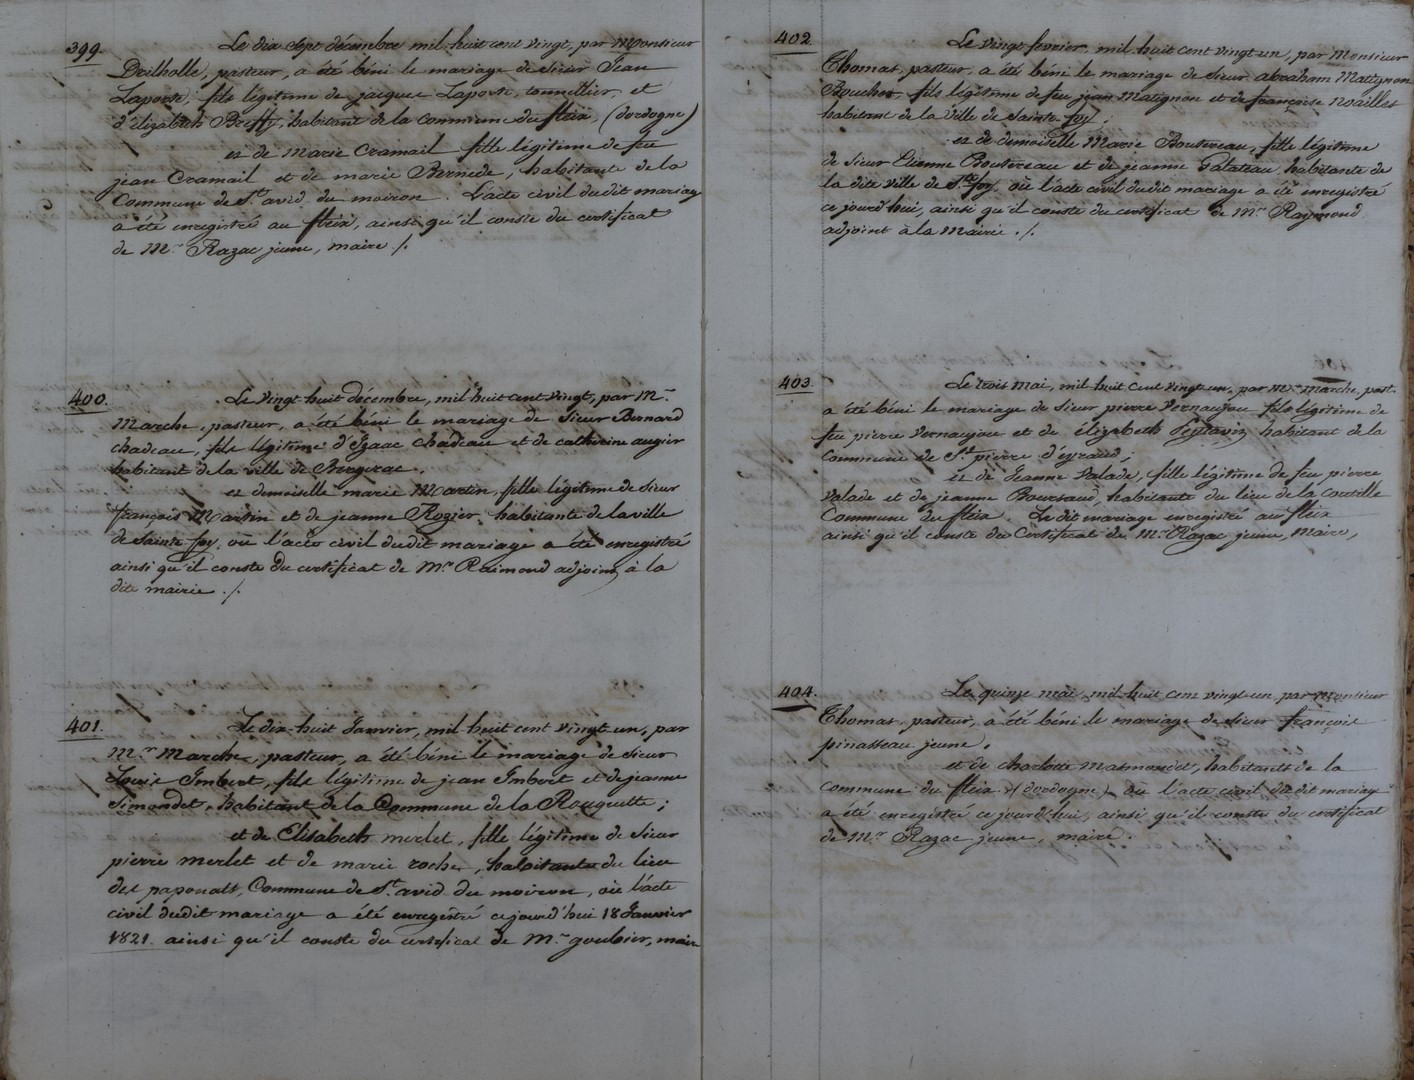 399. Le dix sept décembre mil huit cent vingt, par Monsieur
Drilholle, pasteur, a été béni le mariage de Sieur Jean
Laporte, fils légitime de jacques Laporte, tonnellier, et
d'élizabeth habitant de la commune du fleix, (dordogne)
et de Marie Cramail fille légitime de feu
jean Cramail et de marie Bernede, habitante de la
Commune de St. avid du moiron. L'acte civil dudit mariage
a été enregistré au fleix, ainsi qu'il conste du certificat
de Mr. Razac jeune, maire ./.
400. Le vingt huit décembre, mil huit cent vingt, par Mr.
Marche, pasteur, a été béni le mariage de Sieur Bernard
chadeau, fils légitime d'Izaac chadeau et de catherine augier
habitant de la ville de Bergerac.
et demoiselle marie Martin, fille légitime de Sieur
françois Martin et de jeanne Rozier, habitante de la ville
de Sainte foy, où l'acte civil dudit mariage a été enregistré
ainsi qu'il conste du certificat de Mr. Raimond adjoint à la
dite mairie ./.
401. Le dix-huit Janvier, mil huit cent vingt un, par
Mr. Marche, pasteur, a été béni le mariage de Sieur
Louis Imbert, fils légitime de jean Imbert et de jeanne
Simondet, habitant de la Commune de la Rouquette;
et de Elisabeth merlet, fille légitime de Sieur
pierre merlet et de marie roche, habitante du lieu
des paponats, Commune de St. avid du moiron, où l'acte
civil dudit mariage a été enregistré cejourd'hui 18 Janvier
1821. ainsi qu'il conste du certificat de Mr. goubier, maire
402. Le vingt fevrier, mil huit cent vingt-un, par Monsieur
Thomas, pasteur, a été béni le mariage de Sieur abraham Matignon
Boucher fils légitime de feu jean Matignon et de françoise Noailles
habitant de la Ville de Sainte-foy.
et de demoiselle Marie Boutereau, fille légitime
de Sieur Etienne Boutereau et de jeanne Palateau, habitante de
la dite ville de Ste foy, où l'acte civil dudit mariage a été enregistré
ce jourd'hui, ainsi qu'il conste du certificat de Mr. Raymond
adjoint à la Mairie ./.
403. Le trois Mai, mil huit cent vingt-un, par Mr. marche, past.
a été béni le mariage de Sieur pierre Vernaujou fils légitime de
feu pierre Vernaujou et de élizabeth habitant de la
Commune de St. pierre d'eyraud;
et de Jeanne Valade, fille légitime de feu pierre
Valade et de jeanne Boursaud, habitante du lieu de la coutille
Commune du fleix. Le dit mariage enregistré au fleix
ainsi qu'il conste du Certificat de Mr. Razac jeune, Maire,
404. Le quinze mai, mil huit cent vingt-un par Monsieur
Thomas, pasteur, a été béni le mariage de Sieur françois
pinasseau jeune.
et de charlotte Marmondet, habitants de la
Commune du fleix (dordogne) où l'acte civil dudit mariage
a été enregistré ce jourd'hui, ainsi qu'il conste du certificat
de Mr. Razac jeune, maire.